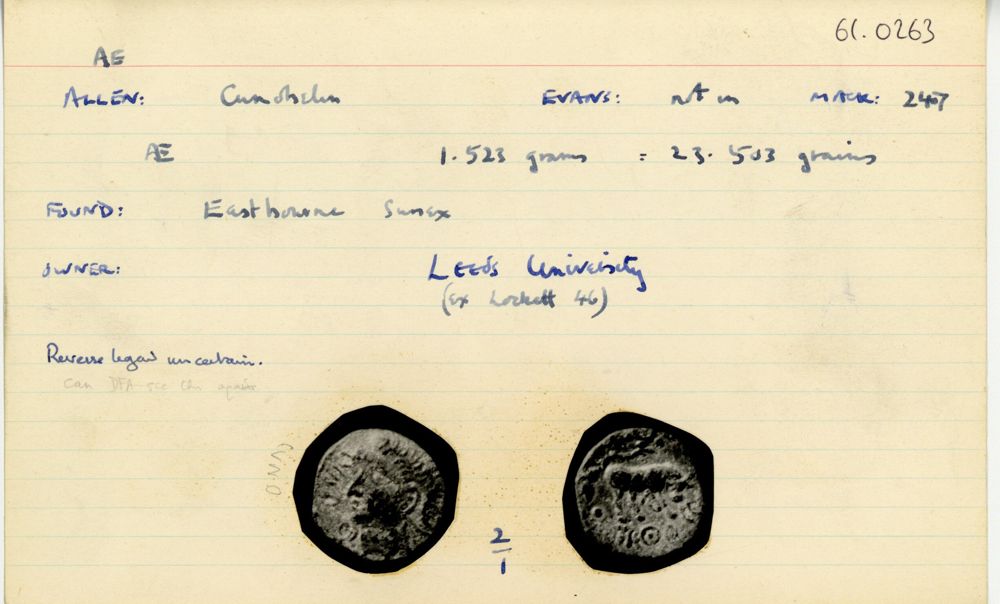 61.0263
AE
ALLEN: Cunobelin EVANS: not in MACK: 247
AE 1.523 grams = 23.503 grains
FOUND: Eastbourne Sussex
OWNER: LEEDS University
(ex Lockett 46)
Reverse legend uncertain.
Can DFA see this again
CUNO
2
1